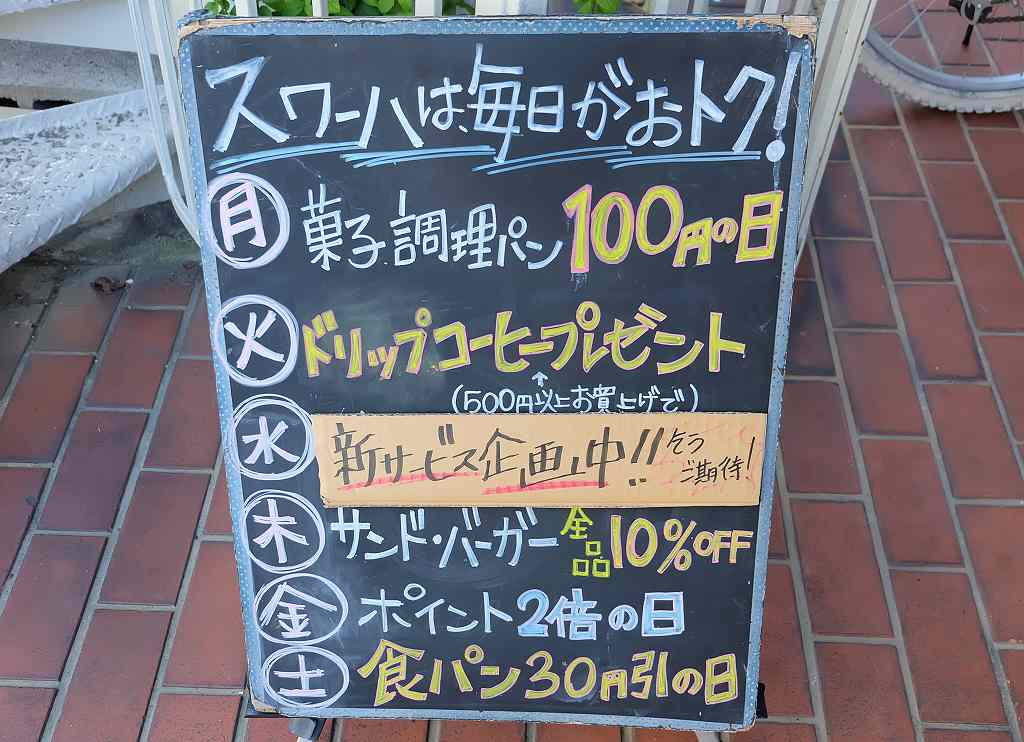 スワーハは、毎日がおトク!
月 菓子調理パン100円の日
火 ドリップコーヒープレゼント
↑
(500円以上お買上げで)
水 新サービス企画中!! そう
ご期待!
木 サンド・バーガー 全品 10%OFF
金 ポイント2倍の日
土 食パン30円引の日